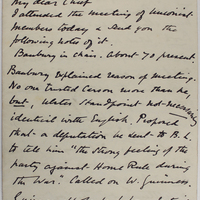 My dear Chief
I attended the meeting of Unionist
Members today & send you the
following notes of it.
Banbury in chair. About 70 present.
Banbury explained reason of meeting.
No one trusted Carson more than he,
but, Ulster standpoint not necessarily
identical with English. Proposed
that a deputation be sent to B.L.
to tell him "the strong feeling of the
party against Home Rule during
the War". Called on W. Guinness.